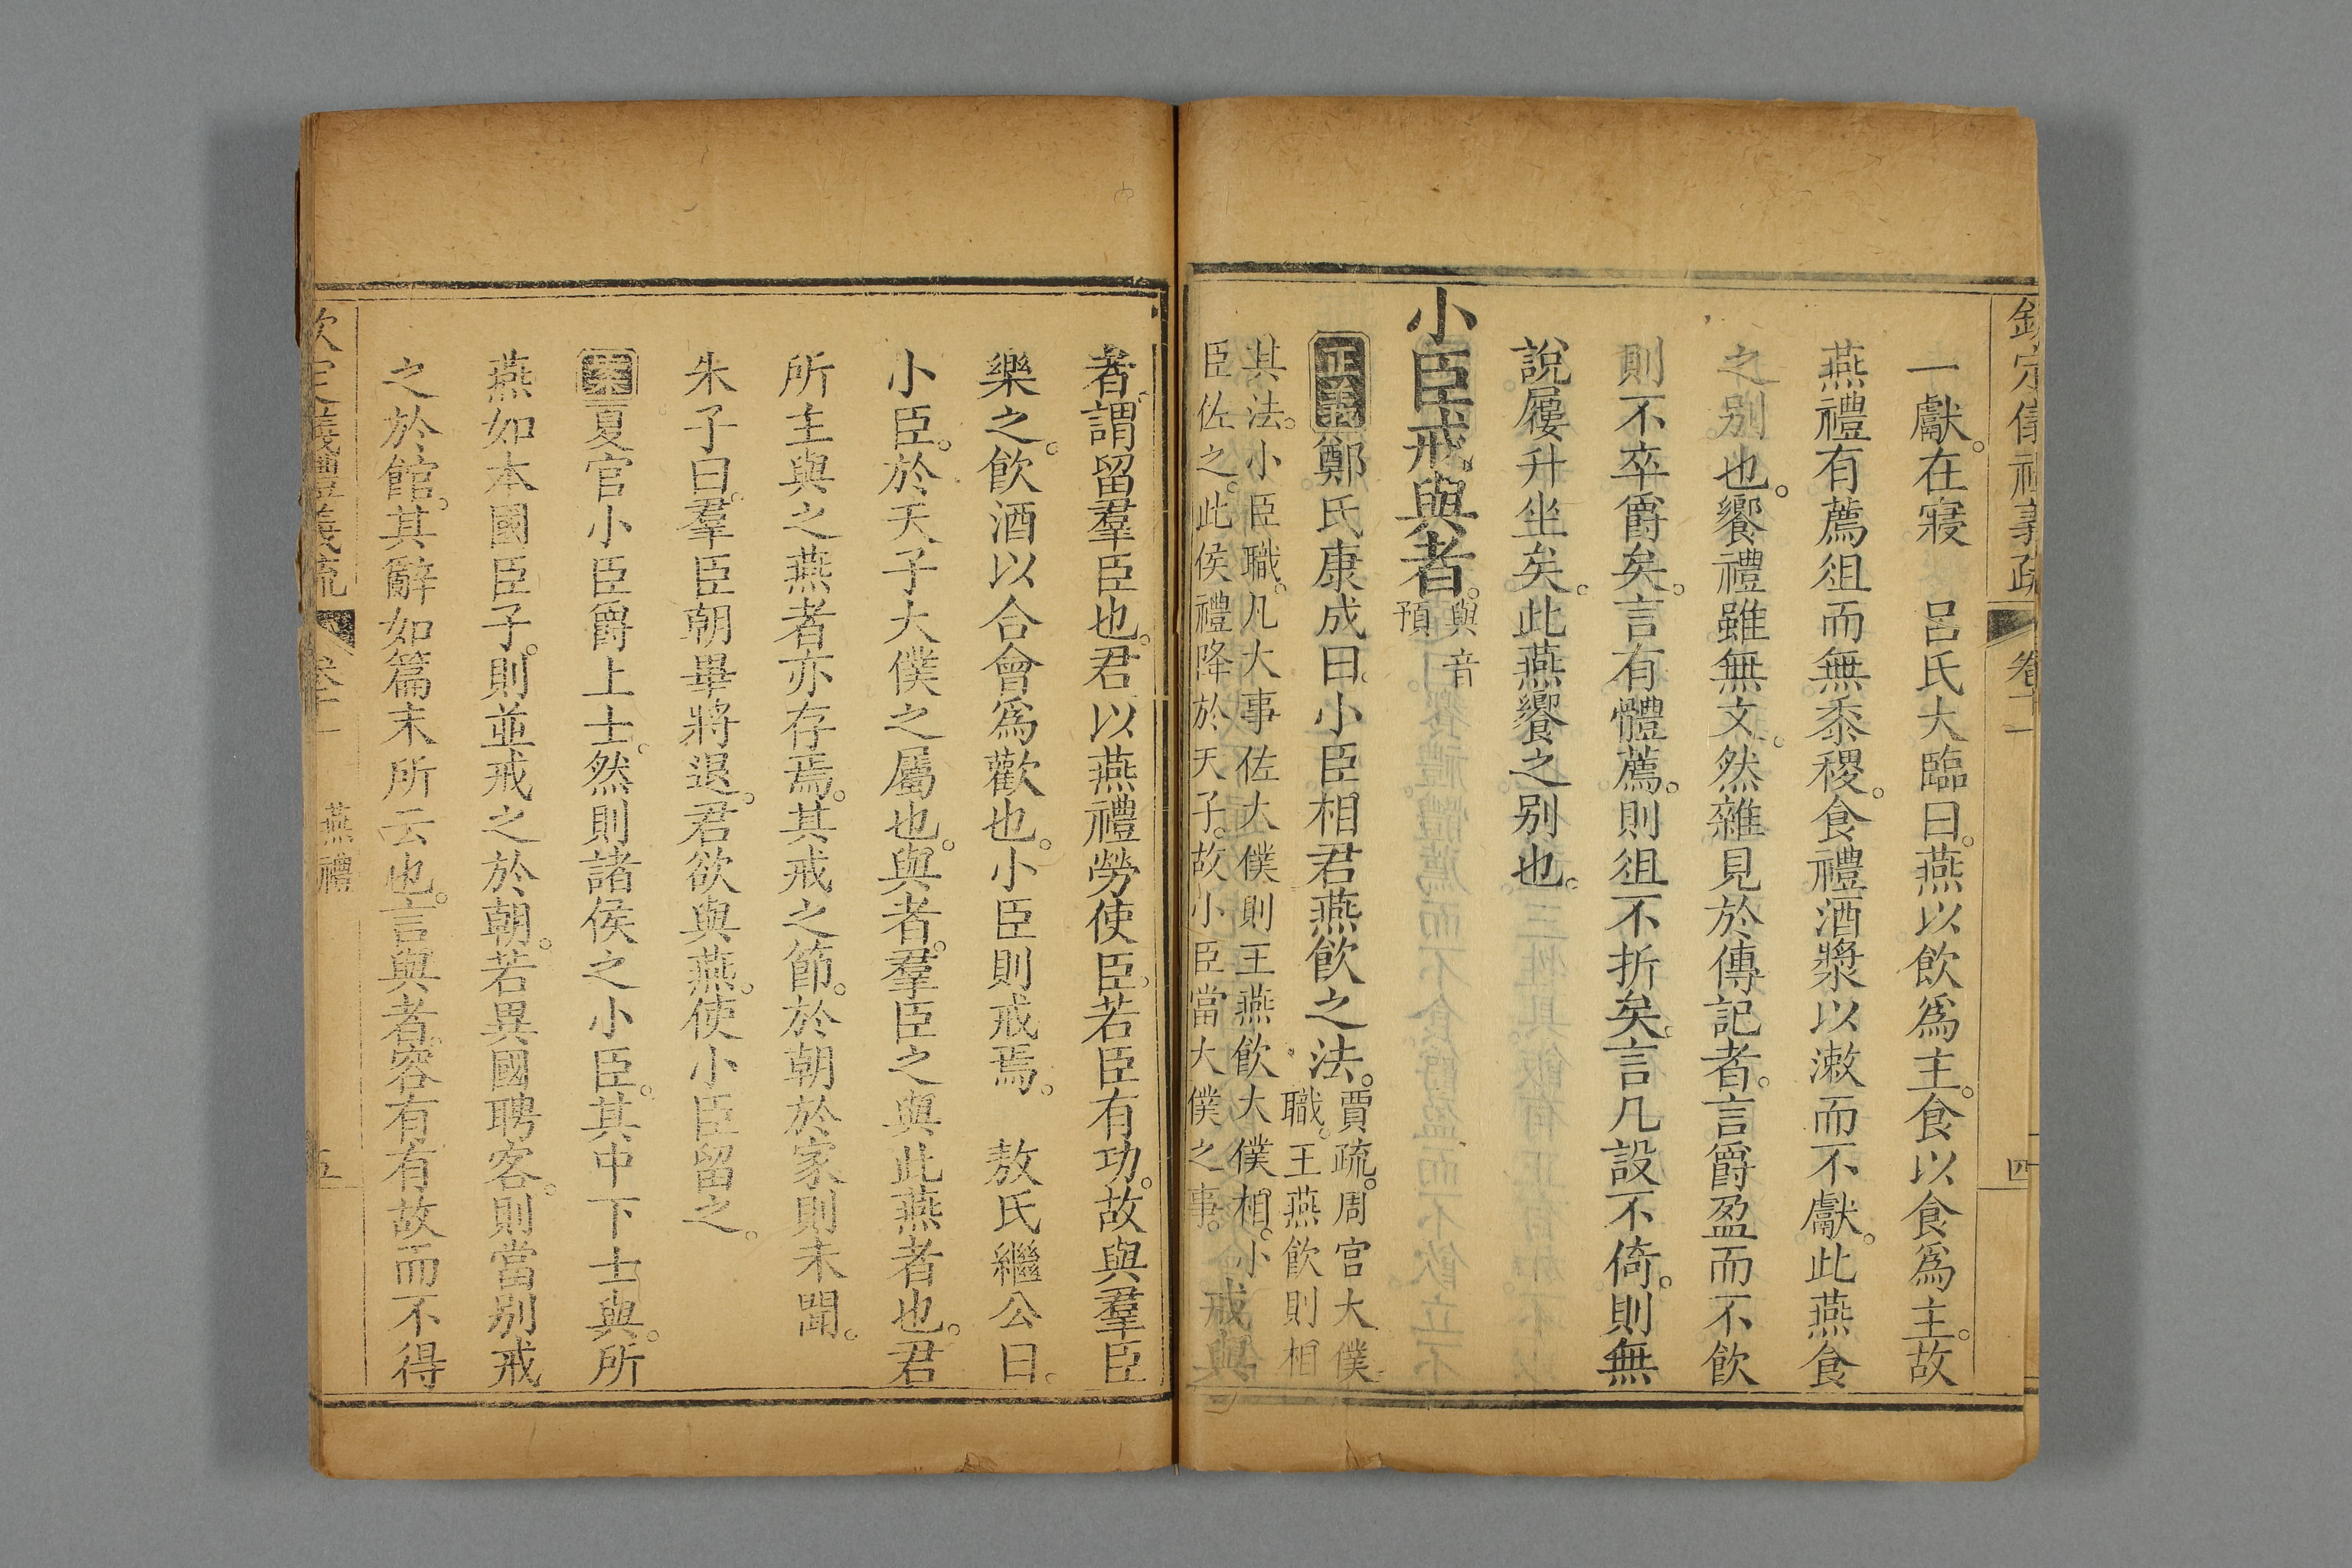 欽定儀禮義疏 卷十一 四
一獻。在寢　呂氏大臨曰。燕以飲爲主。食以食爲主。故
燕禮有薦俎而無黍稷。食禮酒漿以漱而不獻。此燕食
之别也。饗禮雖無文。然雜見於傳記者。言爵盈而不飲
則不卒爵矣。言有體薦。則俎不折矣。言几設不倚。則無
說屨升坐矣。此燕饗之别也。
小臣戒與者。與音預
正義鄭氏康成曰。小臣相君燕飲之法。賈疏。周官大僕職。王燕飲則相
其法。小臣職。凡大事佐大僕則王燕飲大僕相。小
臣佐之。此侯禮降於天子。故小臣當大僕之事。戒與
者。謂留羣臣也。君以燕禮勞使臣。若臣有功。故與羣臣
樂之。飲酒以合會爲歡也。小臣則戒焉。　敖氏繼公曰。
小臣。於天子大僕之屬也。與者。羣臣之與此燕者也。君
所主與之燕者亦存焉。其戒之節。於朝於家則未聞。
朱子曰。羣臣朝畢將退。君欲與燕。使小臣留之。
夏官小臣爵上士。然則諸侯之小臣。其中下士與。所
燕如本國臣子。則並戒之於朝。若異國聘客。則當别戒
之於館。其辭如篇末所云也。言與者。容有有故而不得
欽定儀禮義疏 卷十一 燕禮 五